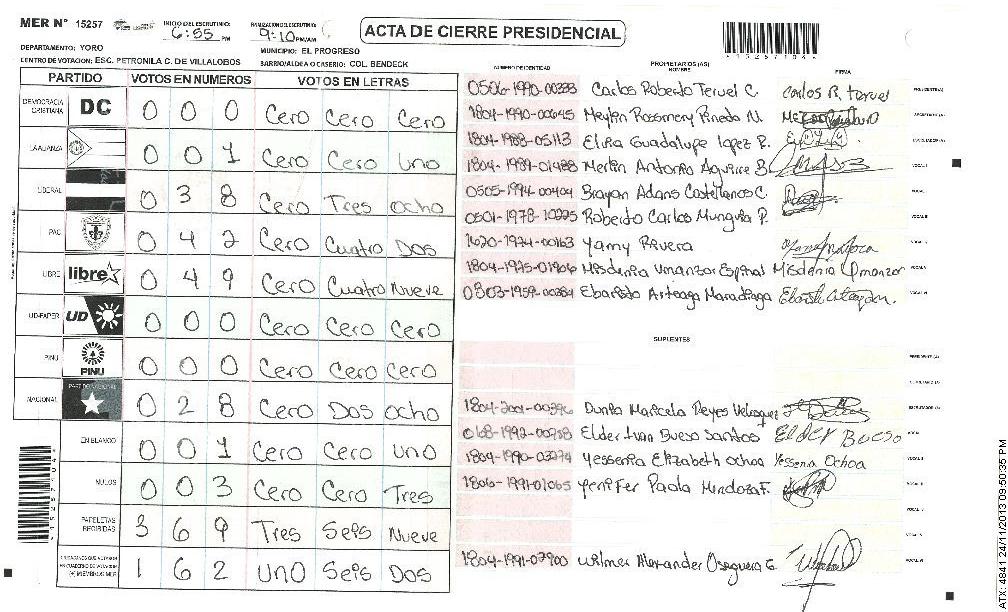 MER N° 15257
INICIO DEL ESCRUTINIO: 6:55 PM
FINALIZACION DEL ESCRUTINIO: 9:10 PM/AM
ACTA DE CIERRE PRESIDENCIAL
DEPARTAMENTO: YORO
MUNICIPIO: EL PROGRESO
CENTRO DE VOTACION: ESC. PETRONILA C. DE VILLALOBOS
BARRIO/ALDEA O CASERIO: COL. BENDECK
PARTIDO VOTOS EN NUMEROS VOTOS EN LETRAS
DEMOCRACIA CRISTIANA DC 0 0 0 Cero Cero Cero
LA ALIANZA 0 0 1 Cero Cero Uno
LIBERAL 0 3 8 Cero Tres ocho
PAC 0 4 2 Cero Cuatro Dos
LIBRE libre 0 4 9 Cero Cuatro Nueve
UD-FAPER UD 0 0 0 Cero Cero Cero
PINU PINU 0 0 0 Cero Cero Cero
NACIONAL PARTIDO NACIONAL 0 2 8 Cero Dos ocho
EN BLANCO 0 0 1 Cero Cero uno
NULOS 0 0 3 Cero Cero Tres
PAPELETAS RECIBIDAS 3 6 9 Tres Seis Nueve
CIUDADANOS QUE VOTARON EN CUADERNO DE VOTACION (+) MIEMBROS MER 1 6 2 UNO Seis Dos
NUMERO DE IDENTIDAD PROPIETARIOS (AS) NOMBRE FIRMA
0506-1990-00333 Carlos Roberto Teruel C. Carlos R. Teruel PRESIDENTE(A)
1804-1990-00645 Meylin Rosmery Pineda N. SECRETARIO(A)
1804-1988-05113 Elvia Guadalupe Lopez P. ESCRUTADOR(A)
1804-1989-01488 Merlin Antonio Aguirre B. VOCAL I
0505-1994-00404 Brayan Adans Castellanos C. VOCAL II
0501-1978-10225 Roberto Carlos Munguia P. VOCAL III
1620-1974-00163 Yamy Rivera VOCAL IV
1804-1975-01806 Misdenia Umanzor Espinal Misdenia Umanzor VOCAL V
0303-1959-00284 Ebaristo Arteaga Maradiaga VOCAL VI
SUPLENTES
PRESIDENTE (A)
SECRETARIO (A)
Dunia Maricela Reyes Velasquez ESCRUTADOR (A)
Elder Ivan Bueso Santos Elder Bueso VOCAL I
1804-1990-03274 Yessenia Elizabeth Ochoa Yessenia Ochoa VOCAL II
1806-1991-01065 Yenifer Paola Mindoza F. VOCAL III
VOCAL IV
VOCAL V
1804-1991-07900 Wilmer Alexander Oseguera G. VOCAL VI
ATX: 4841 24/11/2013 09:50:35 PM